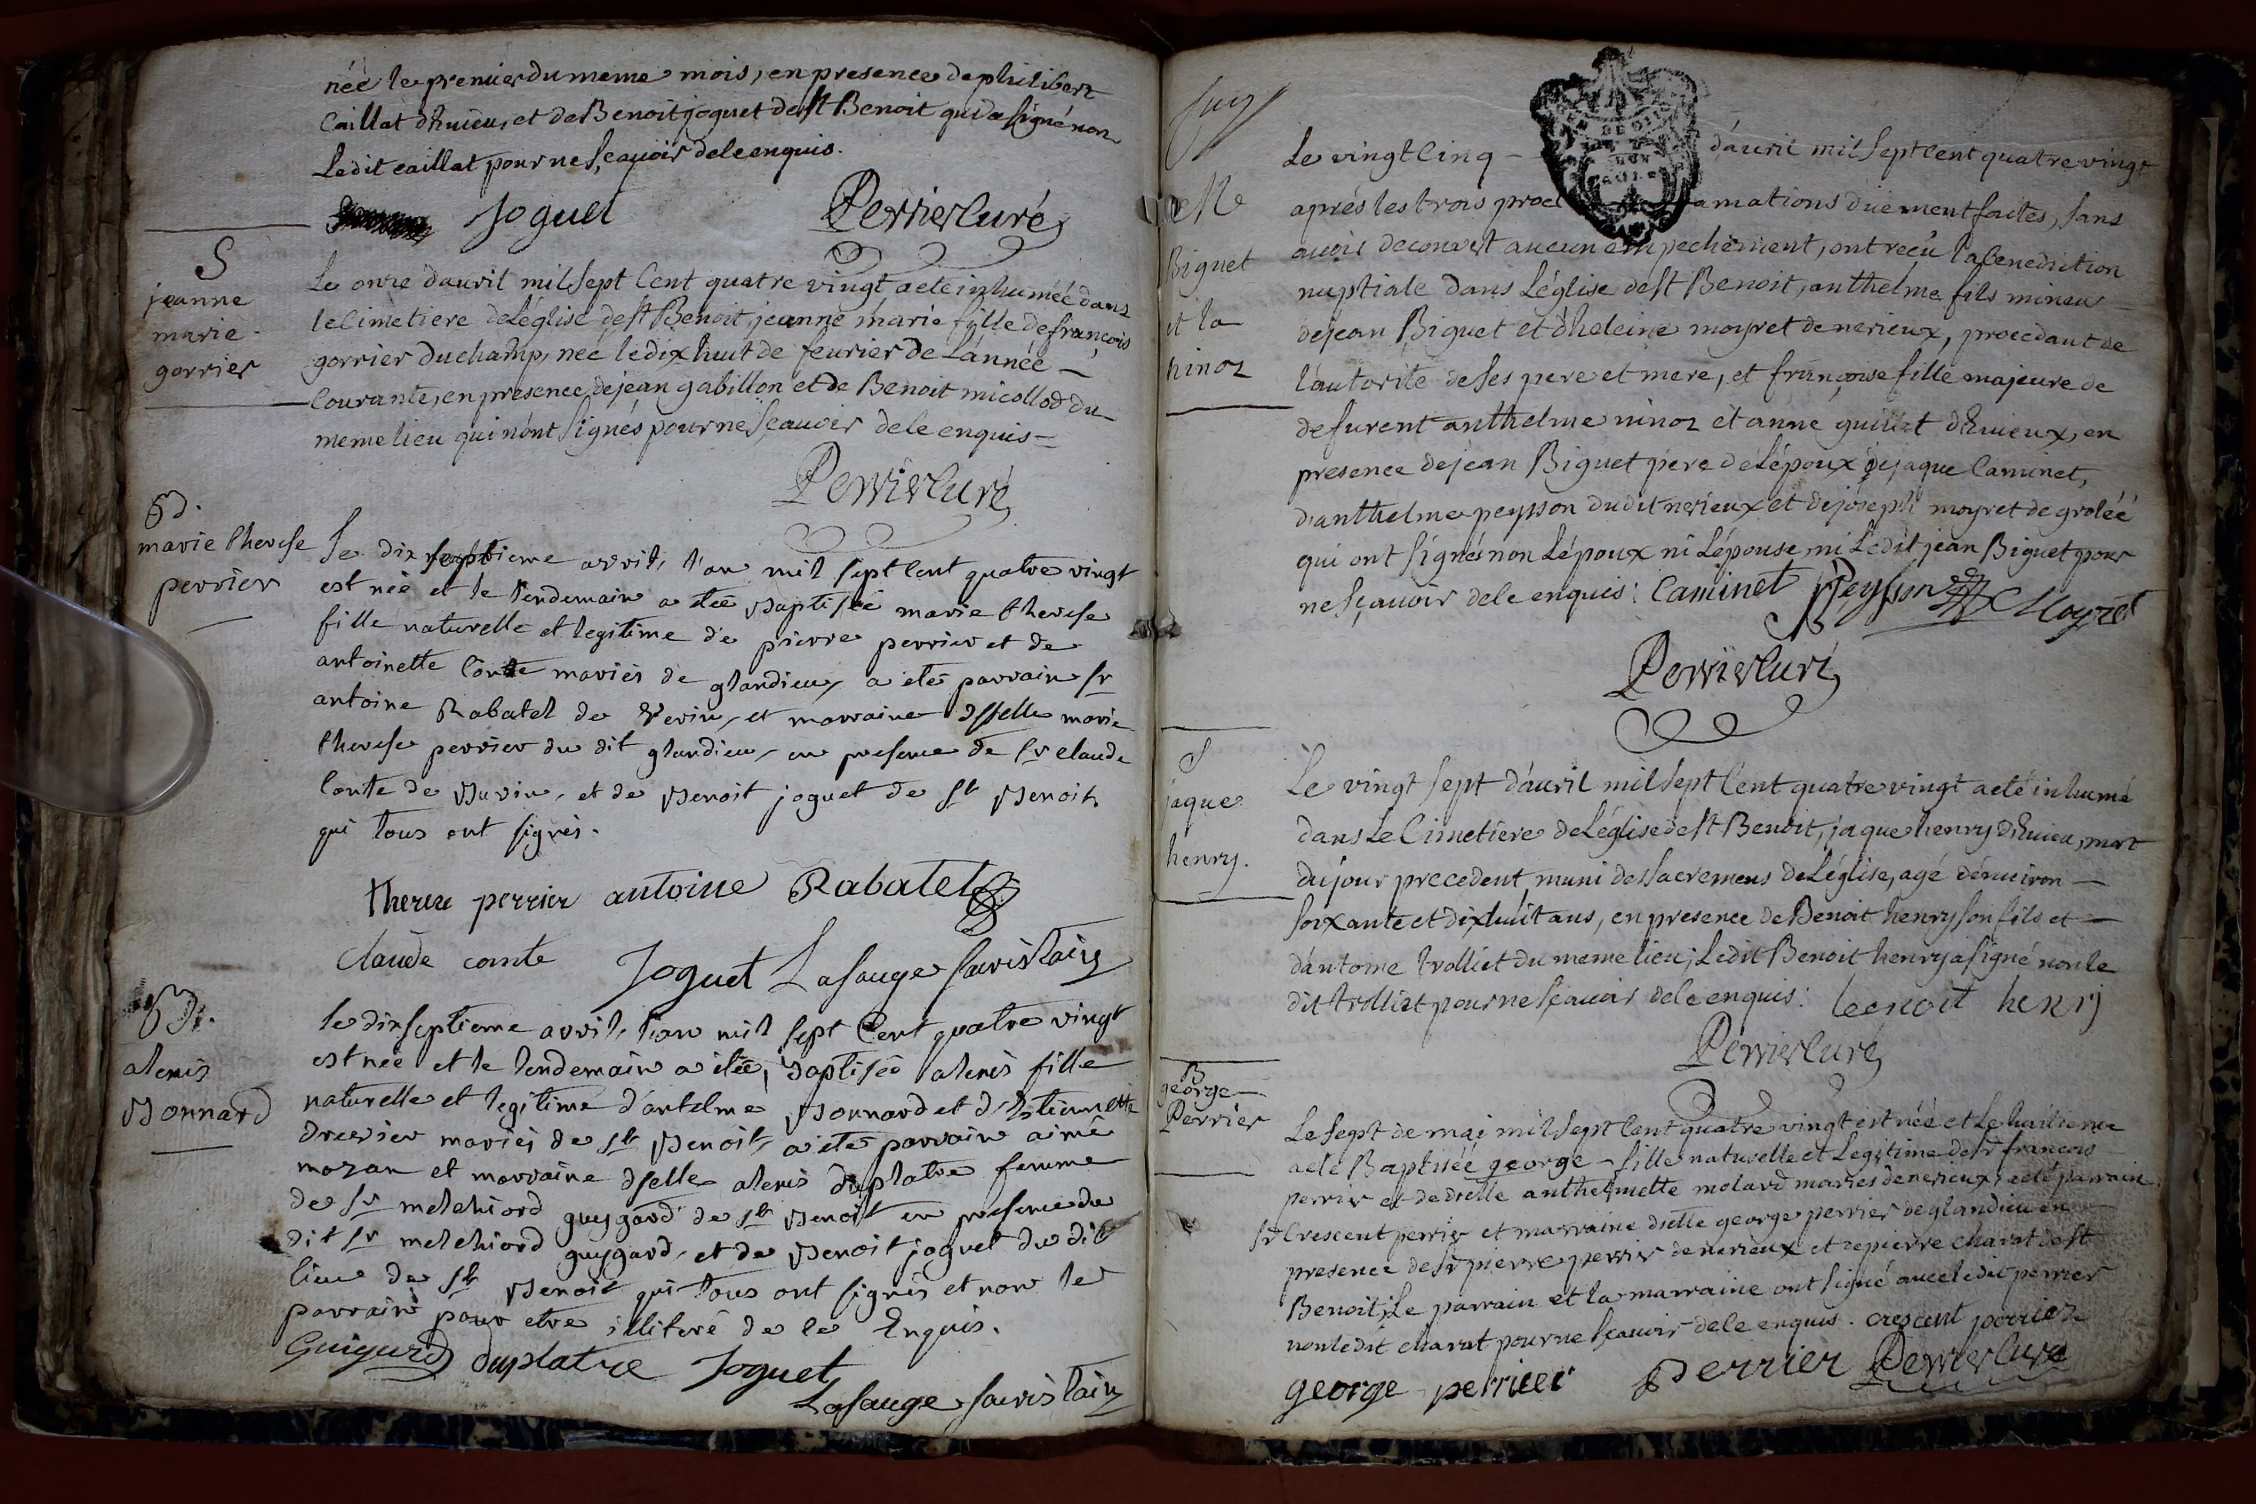 née le premier du meme mois, en presence de philibert
Caillat d'Evieu, et de Benoit joguet de st Benoit qui a signé non
Ledit caillat pour ne sçavoir de le enquis.
Joguet Perrier Curé
S
jeanne
marie
gorrier
Le onze d'avril mil sept Cent quatre vingt a eté inhumée dans
le Cimetiere de L'église de st Benoit, jeanne marie fille de françois
gorrier du champ, née le dix huit de fevrier de L'année
Courante, en presence de jean gabillon et de Benoit micollod du
meme lieu qui n'ont signés pour ne sçavoir de le enquis
Perrier Curé
Bd.
marie therese
perrier
Le dix septieme avril, l'an mil sept Cent quatre vingt
est née et le lendemain a étée Baptisée marie therese
fille naturelle et legitime de pierre perrier et de
antoinette Conte mariés de glandieu, a eté parrain sr
antoine Rabatel de Verin, et marraine dsselle marie
therese perrier du dit glandieu, en presence de sr claude
Conte de Buvin, et de Benoit joguet de st Benoit,
qui tous ont signés.
therese perrier antoine Rabatel
claude conte Joguet Lasauge sacristain
Bd.
alexis
Bonnard
le dix septieme avril, l'an mil sept Cent quatre vingt
est née et le lendemain a étée, Baptisée alexis fille
naturelle et legitime d'antelme Bonnard et d'Estiennette
drevier mariés de st Benoit, a eté parrain aimé
mozan et marraine dselle alexis duplatre femme
de sr melchiord guygard de st Benoit en presence du
dit sr melchiord guygard, et de Benoit joguet du dit
lieu de st Benoit qui tous ont signés et non le
parrain pour etre illiteré de le Enquis.
Guigard duplatre Joguet
Lasauge sacristain
Me
Biguet
et la
ninoz
Le vingt Cinq d'avril mil sept Cent quatre vingt
aprés les trois procl amations düement faites, sans
avoir decouvert aucun empechement, ont reçû la benediction
nuptiale dans L'église de st Benoit, anthelme fils mineur
de jean Biguet et d'heleine moyret de nerieux, procedant de
l'autorité de ses pere et mere, et françoise fille majeure de
defurent anthelme ninoz et anne guillet d'Evieux, en
presence de jean Biguet pere de L'époux de jaque Caminet,
d'anthelme peysson dudit nerieux et de joseph moyret de groleé
qui ont signés non L'époux ni L'épouse, ni Ledit jean Biguet pour
ne sçavoir de le enquis: Caminet Peysson Moyret
Perrier Curé
S
jaque
henry.
Le vingt sept d'avril mil sept Cent quatre vingt a eté inhumé
dans Le Cimetiere de L'église de st Benoit, jaque henry d'Evieu, mort
du jour precedent muni des sacremens de L'église, agé d'environ
soixante et dix huit ans, en presence de Benoit henry son fils et
d'antoine trolliet du meme lieu; Ledit Benoit henry a signé non le
dit trolliet pour ne sçavoir de le enquis: benoit henrj
Perrier Curé
B
george
Perrier
Le sept de mai mil sept Cent quatre vingt est née et Le huitieme
a eté Baptisée george fille naturelle et Legitime de sr francois
perrier et de dselle anthelmette molard mariés de nerieux, a eté parrain
sr Crescent perrier et marraine dselle george perrier de glandieu en
presence de sr pierre perrier de nerieux et de pierre charat de st
Benoit; Le parrain et la marraine ont signé avec le dit perrier
non ledit charat pour ne sçavoir de le enquis. crescent perrier
george perrier Perrier Perrier Curé